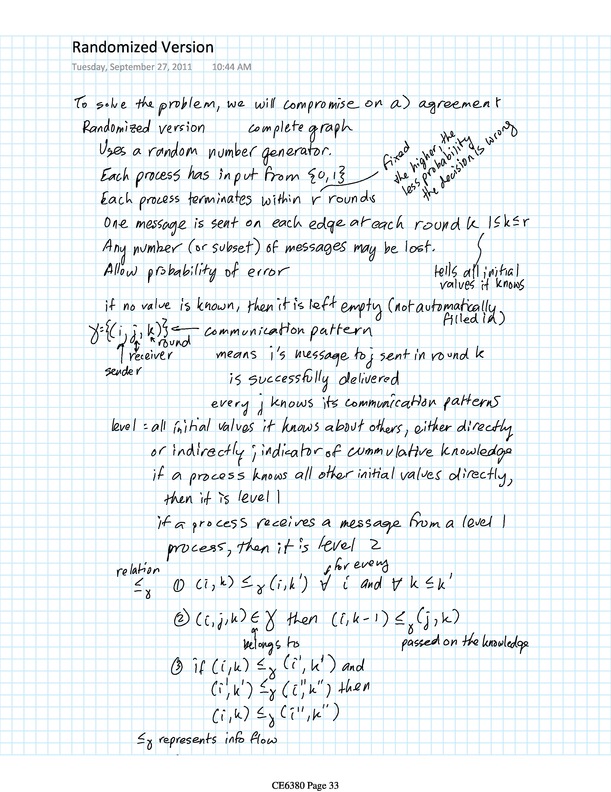 Randomized Version
Tuesday, September 27, 2011 10:44 AM
To solve the problem, we will compromise on a) agreement
Randomized version complete graph
Uses a random number generator.
Each process has input from {0,1}
Each process terminates within r rounds
fixed
the higher, the
less probability
the decision is wrong
One message is sent on each edge at each round k 1≤k≤r
Any number (or subset) of messages may be lost.
Allow probability of error
tells all initial
values it knows
if no value is known, then it is left empty (not automatically
filled in)
γ={(i,j,k)} ← communication pattern
round
receiver
sender
means i's message to j sent in round k
is successfully delivered
every j knows its communication patterns
level = all initial values it knows about others, either directly
or indirectly; indicator of cummulative knowledge
if a process knows all other initial values directly,
then it is level 1
if a process receives a message from a level 1
process, then it is level 2
relation
≤γ
for every
① (i,k) ≤γ (i,k') ∀ i and ∀ k ≤ k'
② (i,j,k) ∈ γ then (i,k-1) ≤γ (j,k)
belongs to
passed on the knowledge
③ if (i,k) ≤γ (i',k') and
(i',k') ≤γ (i'',k'') then
(i,k) ≤γ (i'',k'')
≤γ represents info flow
CE6380 Page 33